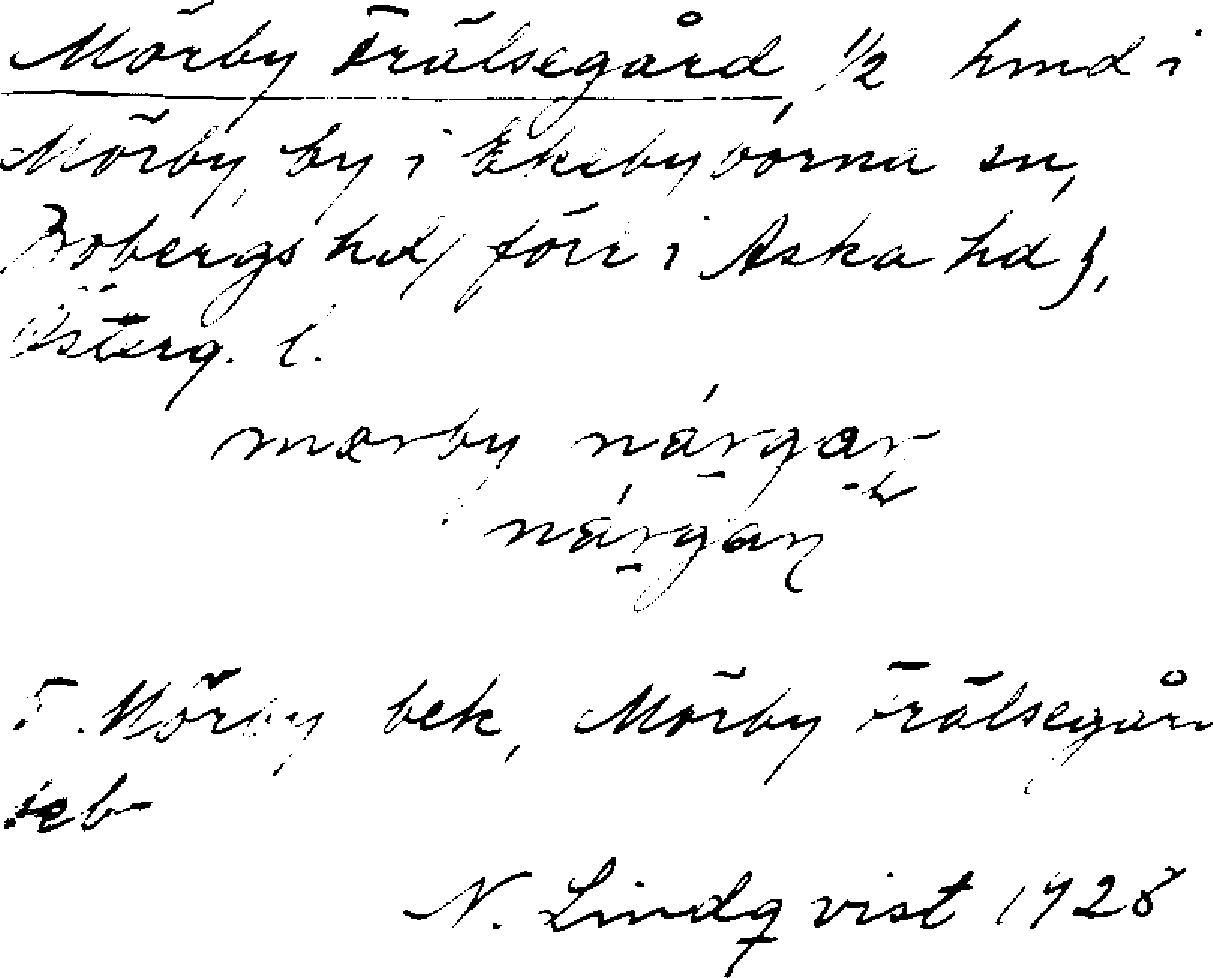 Mörby Frälsegård, 1/2 hmd i
Mörby, by i Ekebyborna sn,
Bobergs hd (förr i Aska hd),
Österg. l.
mœrby nárgar
nárgaɳ
F. Mörby bek, Mörby Frälsegård
jeb
N. Lindqvist 1928